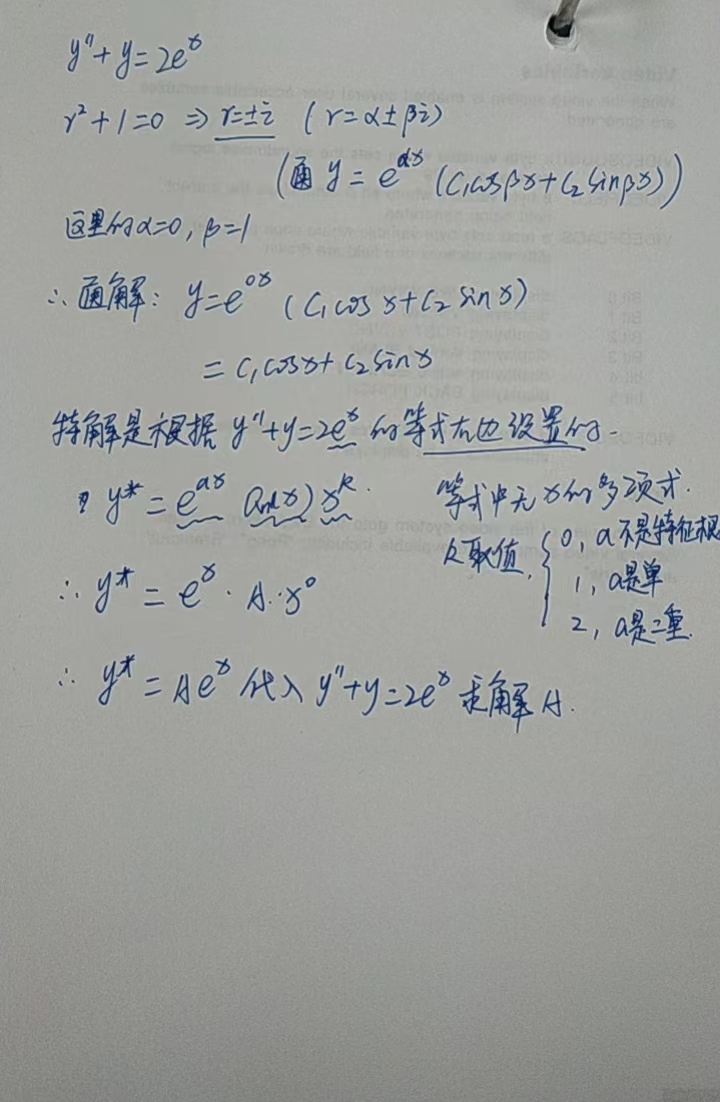 y″+y=2eˣ
r²+1=0 ⇒ r=±i (r=α±βi)
(通 y=e^{αx}(C₁cosβx+C₂sinβx))
这里的α=0,β=1
∴通解: y=e^{0x}(C₁cosx+C₂sinx)
=C₁cosx+C₂sinx
特解是根据y″+y=2eˣ的等式右边设置的.
y*=e^{ax} Qₘ(x) x^k. 等式中无x的多项式.
k取值. { 0, a不是特征根
1, a是单
2, a是二重.
∴ y*=eˣ·A·x⁰
∴ y*=Aeˣ代入y″+y=2eˣ求解A.